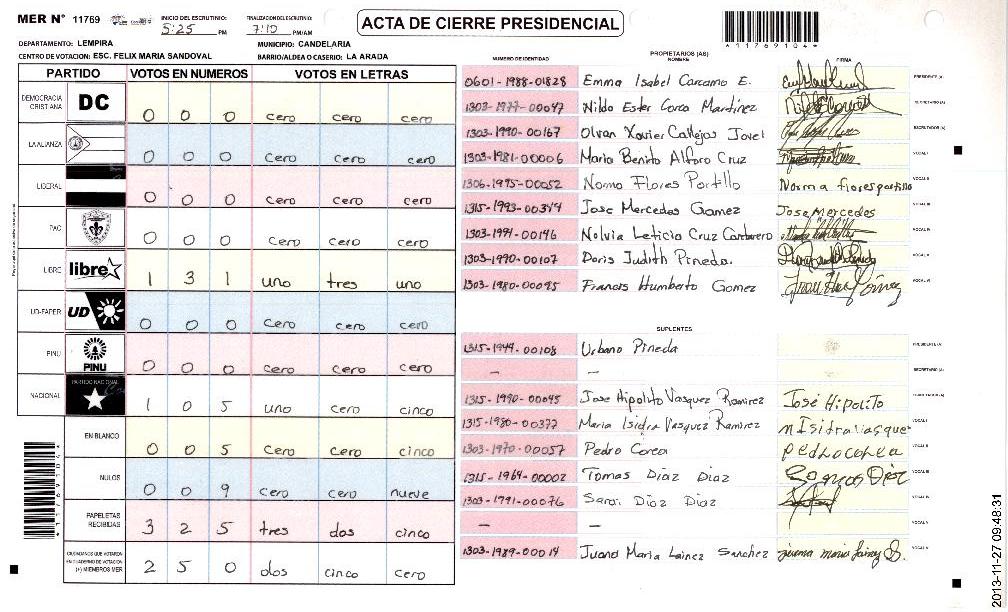 MER N° 11769 INICIO DEL ESCRUTINIO: 5:25 PM FINALIZACION DEL ESCRUTINIO: 7:10 PM/AM
ACTA DE CIERRE PRESIDENCIAL
*11769104*
DEPARTAMENTO: LEMPIRA MUNICIPIO: CANDELARIA
CENTRO DE VOTACION: ESC. FELIX MARIA SANDOVAL BARRIO/ALDEA O CASERIO: LA ARADA
PARTIDO VOTOS EN NUMEROS VOTOS EN LETRAS
DEMOCRACIA CRISTIANA DC 0 0 0 cero cero cero
LA ALIANZA 0 0 0 cero cero cero
LIBERAL 0 0 0 cero cero cero
PAC 0 0 0 cero cero cero
LIBRE libre 1 3 1 uno tres uno
UD-FAPER UD 0 0 0 cero cero cero
PINU PINU 0 0 0 cero cero cero
NACIONAL PARTIDO NACIONAL 1 0 5 uno cero cinco
EN BLANCO 0 0 5 cero cero cinco
NULOS 0 0 9 cero cero nueve
PAPELETAS RECIBIDAS 3 2 5 tres dos cinco
CIUDADANOS QUE VOTARON EN CUADERNO DE VOTACION (+) MIEMBROS MER 2 5 0 dos cinco cero
*11769104*
PROPIETARIOS (AS)
NUMERO DE IDENTIDAD NOMBRE FIRMA
0601-1988-01828 Emma Isabel Carcamo E. PRESIDENTE (A)
1303-1977-00047 Nildo Ester Corea Martinez SECRETARIO (A)
1303-1990-00167 Olvan Xavier Callejas Jovel ESCRUTADOR (A)
1303-1981-00006 Maria Benito Alfaro Cruz VOCAL I
1306-1995-00052 Norma Flores Portillo Norma flores portillo VOCAL II
1315-1993-00344 Jose Mercedes Gomez Jose Mercedes VOCAL III
1303-1991-00146 Nolvia Leticia Cruz Cantarero VOCAL IV
1303-1990-00107 Doris Judith Pineda. VOCAL V
1303-1980-00095 Francis Humberto Gomez VOCAL VI
SUPLENTES
1315-1949-00108 Urbano Pineda PRESIDENTE (A)
— — SECRETARIO (A)
1315-1990-00045 Jose Hipolito Vasquez Ramirez José Hipolito ESCRUTADOR (A)
1315-1980-00377 Maria Isidra Vasquez Ramirez M Isidra vasque VOCAL I
1303-1970-00057 Pedro Corea pedro corea VOCAL II
1315-1964-00002 Tomas Diaz Diaz VOCAL III
1303-1991-00076 Sarai Diaz Diaz VOCAL IV
— — VOCAL V
1303-1989-00014 Juana Maria Lainez Sanchez juana maria lainez S. VOCAL VI
2013-11-27 09:48:31